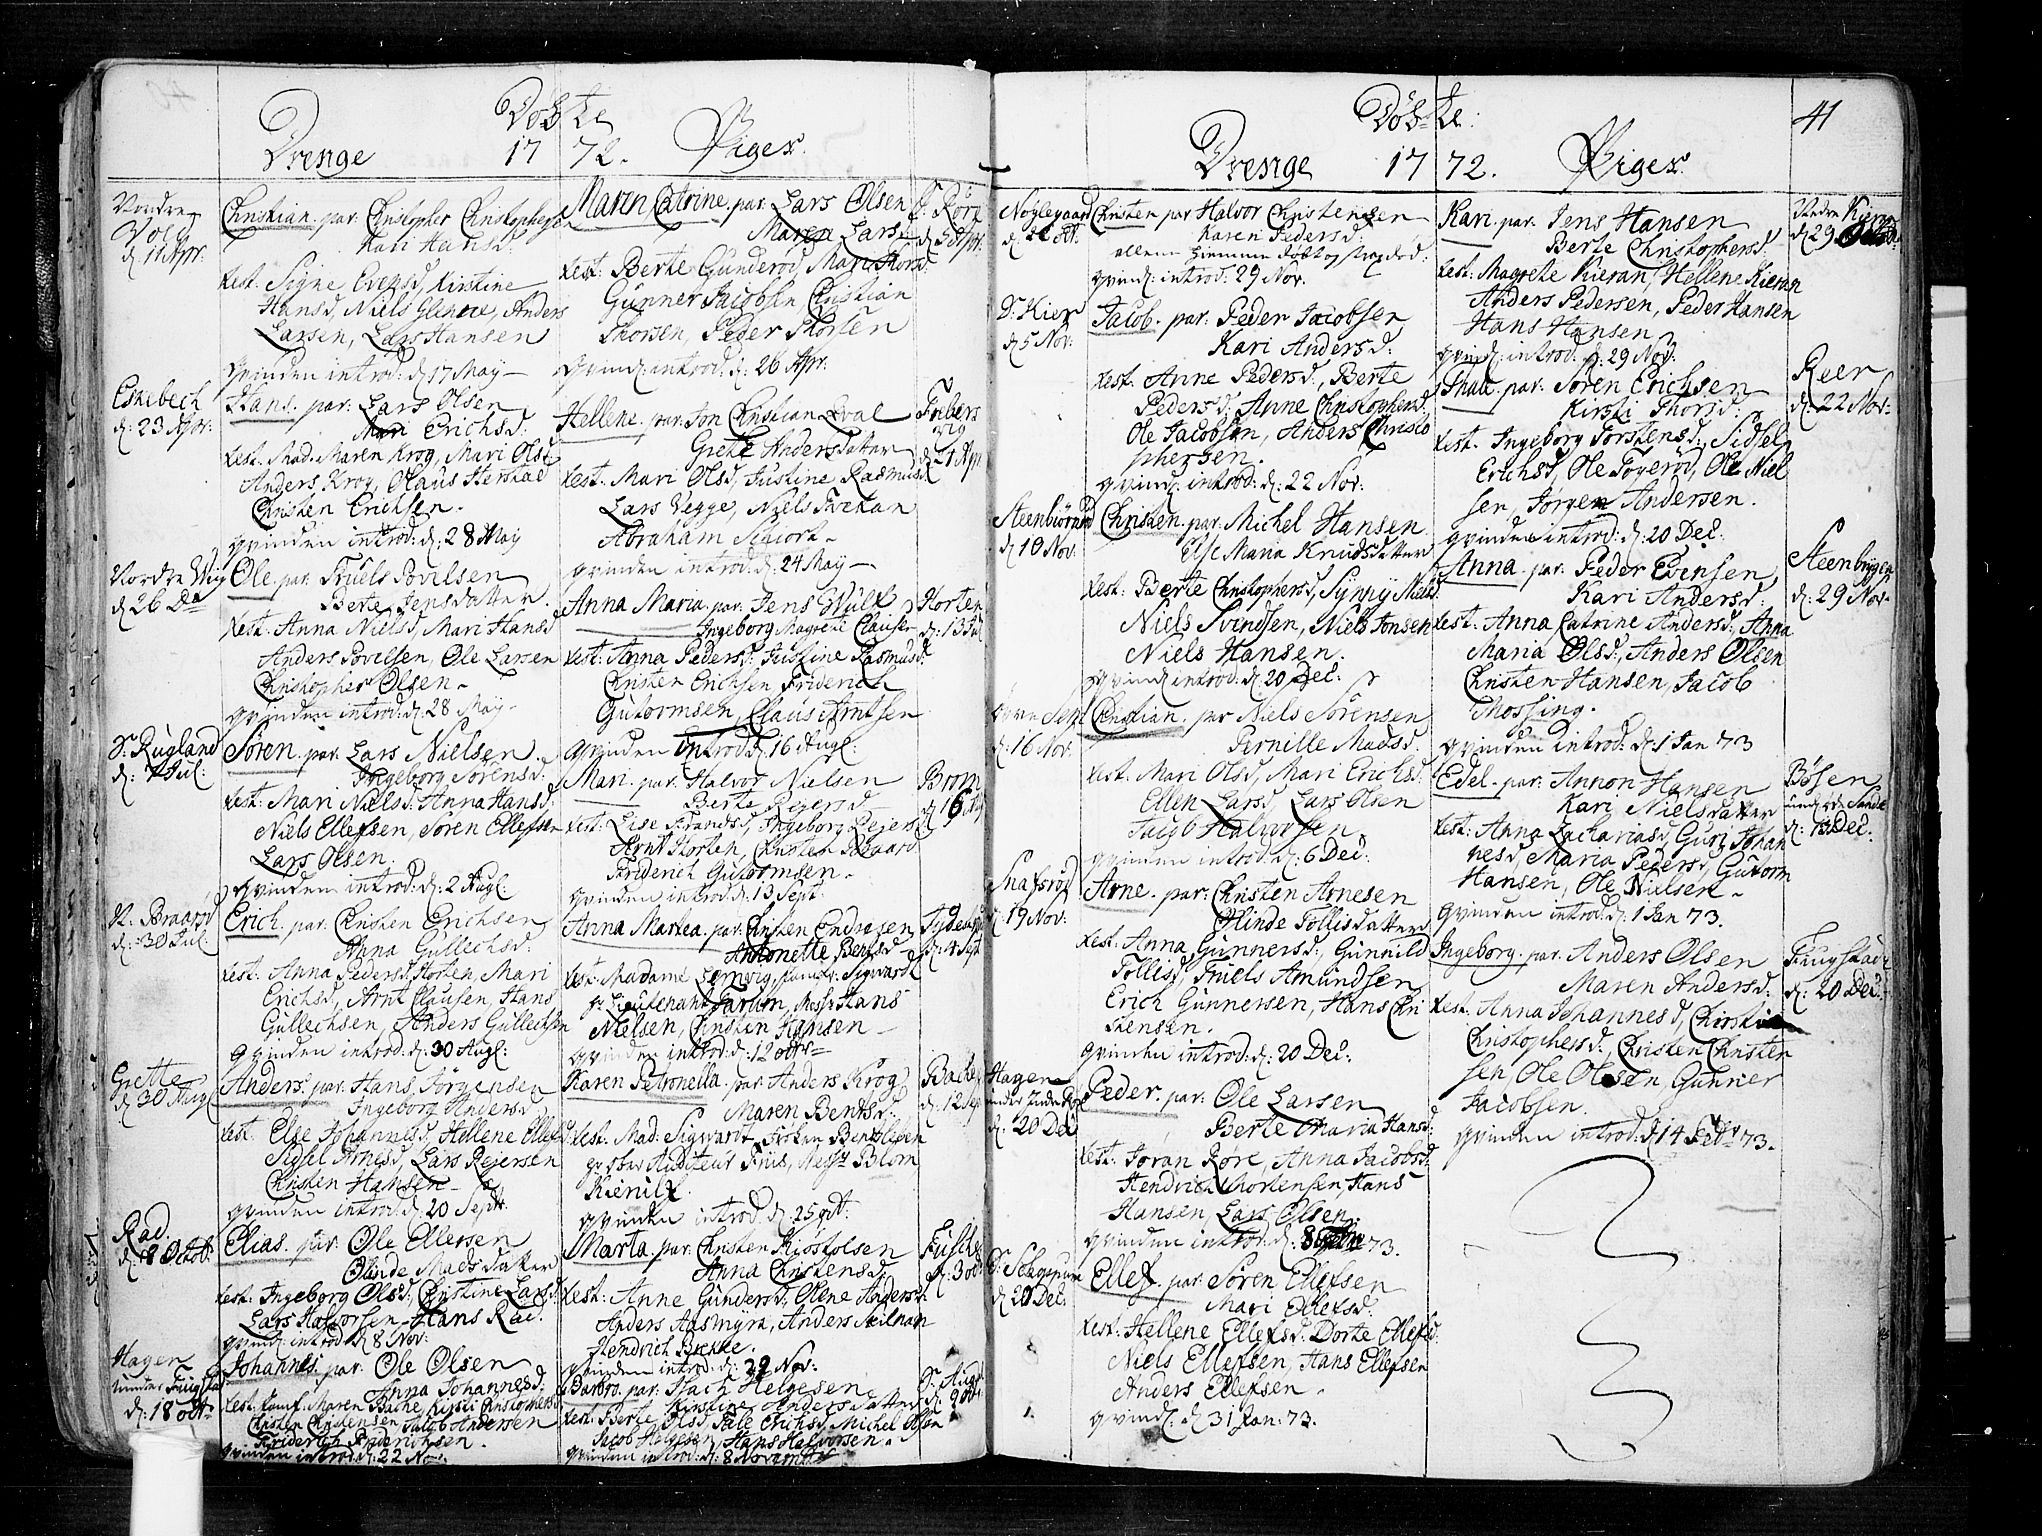 Døbte
Drenge 17 72. Piger.
Vordre
d: 11 Apr:
Christian. par: Christopher Christophersen
Kari Hansd:
test: Signe Evensd, Kirstine
Hansd, Niels Glenne, Anders
Larsen, Lars Hansen
qvinden introd: d: 17 May
Eskebech
d: 23 Apr:
Hans. par: Lars Olsen
Mari Erichsd:
test: Mad. Maren Krog, Mari Olsd:
Anders Krog, Olaus Herstad
Christen Erichsen.
qvinden introd: d: 28 May
Vordre Wiig
d: 26 Do
Ole. par: Truels Povelsen
Berte Jensdatter.
test: Anna Nielsd, Mari Hansd
Anders Povelsen, Ole Larsen
Christopher Olsen
qvinden introd: d: 28 May
S: Rugland
d: 7 Jul:
Søren. par: Lars Nielsen
Ingeborg Sørensd:
test: Mari Nielsd: Anna Hansd:
Niels Ellefsen, Søren Ellefsen
Lars Olsen.
qvinden introd: d: 2 Augl:
N: Braarød
d: 30 Jul:
Erich. par: Christen Erichsen
Anna Gullechsd:
test: Anna Pedersd Horten, Mari
Erichsd, Arnt Clausen, Hans
Gullechsen, Anders Gullechsen
qvinden introd: d: 30 Augl:
Grette
d: 30 Aug:
Anders. par: Hans Jørgensen
Ingeborg Andersd
test: Else Johannesd, Hellene Ellefsd:
Sidsel Arnesd, Lars Rejersen
Christen Hansen
qvinden introd: d: 20 Sept.
Rad.
d: 8 Octob:
Elias. par: Ole Ellefsen
Olinde Madsdatter
test: Ingeborg Olsd, Christine Larsd:
Lars Halvorsen, Hans Rad.
qvind: introd d 8 Nov:
Hagen
under Fuugstad
d: 18 oct:
Johannes. par: Ole Olsen
Anna Johannesd:
test: Jomf: Maren Bache, Kirsti Christophersd
Christen Christensen, Jacob Andersen
Friderich Friderichsen.
qvinden introd: d: 22 Nov:
Maren Catrine. par: Lars Olsen
Maren Larsd:
d: 5 Apr:
test: Berte Gunderød, Mari Thorsd:
Gunner Jacobsen Christian
Thorsen, Peder Thorsen
qvind: introd: d: 26 Apr:
Hellene. par: Jon Christian
Grete Andersdatter
d: 21 Apr
test: Mari Olsd, Justine Rasmusd:
Lars Vegge, Niels
Abraham
qvinden introd: d: 24 May
Anna Maria. par: Jens Wulf
Ingeborg Magrete Clausen
Horten
d: 13 Jul
test: Anna Pedersd, Justine Rasmusd:
Christen Erichsen, Friderich
Gutormsen, Claus Arntsen
qvinden introd: d: 16 Augl:
Mari. par: Halvor Nielsen
Berte Rejersd
Brom
test: Lise Frandsd, Ingeborg Rejersd
Arnt Horten, Christen Braarød
Friderich Gutormsen
qvinden introd: d: 13 Sept:
Anna Martea. par: Christen Endresen
Antonette Bentsd
test: Madame Lemvig, Jomfr: Sigvardt
hr Lieutenant Garben, Mosr: Hans
Nielsen, Christen Hansen
qvinden introd: d: 12 octr
Karen Petronella. par: Anders Krog
Maren Bentsd:
Backe
d: 12 Sep
test: Mad: Sigvardt, Frøken Bentsleben
hr ober Auditeur Friis, Mosr: Blom
qvinden introd: d: 25 oct:
Marta. par: Christen Kiøstolsen
Anna Christensd
d: 3 oct
test: Anne Gundersd, Olene Andersd:
Anders Aasmyra, Anders
Hendrich Brekke.
qvinden introd: d: 22 Nov:
Barbro. par: Isach Helgesen
Kirstine Andersdatter
test: Berte Olsd, Pale Erichsd, Michel Olsen
Jacob Helgesen, Hans Halvorsen.
qvinden introd: d: 8 November
Døbte.
41
Drenge 17 72. Piger.
Noglegaard
d: 22 oct.
Christen par Halvor Christensen
Karen Pedersd.
allene hiemme døbt og strax død:
qvind: introd: 29 Nov.
D: Kier
d: 5 Nov:
Jacob. par: Peder Jacobsen
Kari Andersd:
test: Anne Pedersd:, Berte
Pedersd: Anne Christophersd:
Ole Jacobsen, Anders Christo
phersen.
qvind: introd: d: 22 Nov:
Steenbiørnrød
d: 10 Nov:
Christen. par: Michel Hansen
Else Maria Knudsdatter
test: Berte Christophersd, Synny Nielsd.
Niels Svendsen, Niels Jonsen
Niels Hansen.
qvind: introd: d: 20 Dec:
d: 16 Nov.
Christian. par Niels Sørensen
Pernille Madsd.
test: Mari Olsd, Mari Erichsd:
Ellen Larsd, Lars Olsen
Jacob Halvorsen.
qvinden introd: d: 6 Dec:
Snafsrød
d: 19 Nov:
Arne. par: Christen Arnesen
Olinde Tollisdatter
test: Anna Gunnersd, Gunnild
Tollisd, Truels Amundsen
Erich Gunnersen, Hans Chri
stensen.
qvinden introd: d: 20 Dec:
Hagen
d: 20 Dec
Peder. par: Ole Larsen
Berte Maria Hansd:
test: Joran Røre, Anna Jacobsd:
Hendrich Mortensen, Hans
Hansen, Lars Olsen.
qvinden introd: d: 73.
d: 20 Dec:
Ellef. par: Søren Ellefsen
Mari Ellefsd.
test: Hellene Ellefsd: Dorte Ellefsd:
Niels Ellefsen, Hans Ellefsen
Anders Ellefsen.
qvind: d: 31 Jan: 73.
Kari. par: Jens Hansen
Berte Christophersd.
Vordre Kieran
d: 29
test: Magrete Kieran, Hellene Kieran
Anders Pedersen, Peder Hansen
Hans Hansen
qvind: introd: d: 29 Nov:
Thale. par: Søren Erichsen
Kirsti Thorsd:
Reer
d: 22 Nov:
test: Ingeborg Torstensd:, Sidsel
Erichsd, Ole Foyerød, Ole Niel
sen, Jørgen Andersen.
qvinden introd: d: 20 Dec:
Anna. par: Peder Evensen
Kari Andersd:
Steenbrygga
d: 29 Nov
test: Anna Catrine Andersd:, Anna
Maria Olsd:, Anders Olsen
Christen Hansen, Jacob
Mossing.
qvinden introd: d: 1 Jan 73
Edel. par: Annon Hansen
Kari Nielsdatter
Bøsen
d: 13 Dec:
test: Anna Zachariasd, Guri Johan
nesd, Maria Pedersd, Gutorm
Hansen, Ole Nielsen
qvinden introd: d: 1 Jan 73.
Ingeborg. par: Anders Olsen
Maren Andersd:
Fuugstad
d: 20 Dec:
test: Anna Johannesd, Christin
Christophersd:, Christen Christen
sen, Ole Olsen, Gunner
Jacobsen.
qvinden introd: d: 14 Febr 73.